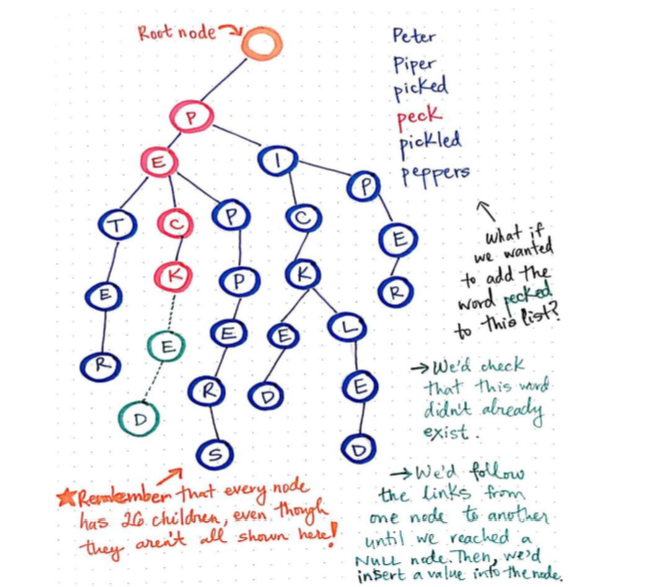 Root node
P
E
I
T
C
P
C
P
E
K
P
K
E
R
E
E
E
L
R
D
R
D
E
S
D
Peter
Piper
picked
peck
pickled
peppers
what if
we wanted
to add the
word pecked
to this list?
→We'd check
that this word
didn't already
exist.
→We'd follow
the links from
one node to another
until we reached a
NULL node. Then, we'd
insert a value into the node.
★Remember that every node
has 26 children, even though
they aren't all shown here!